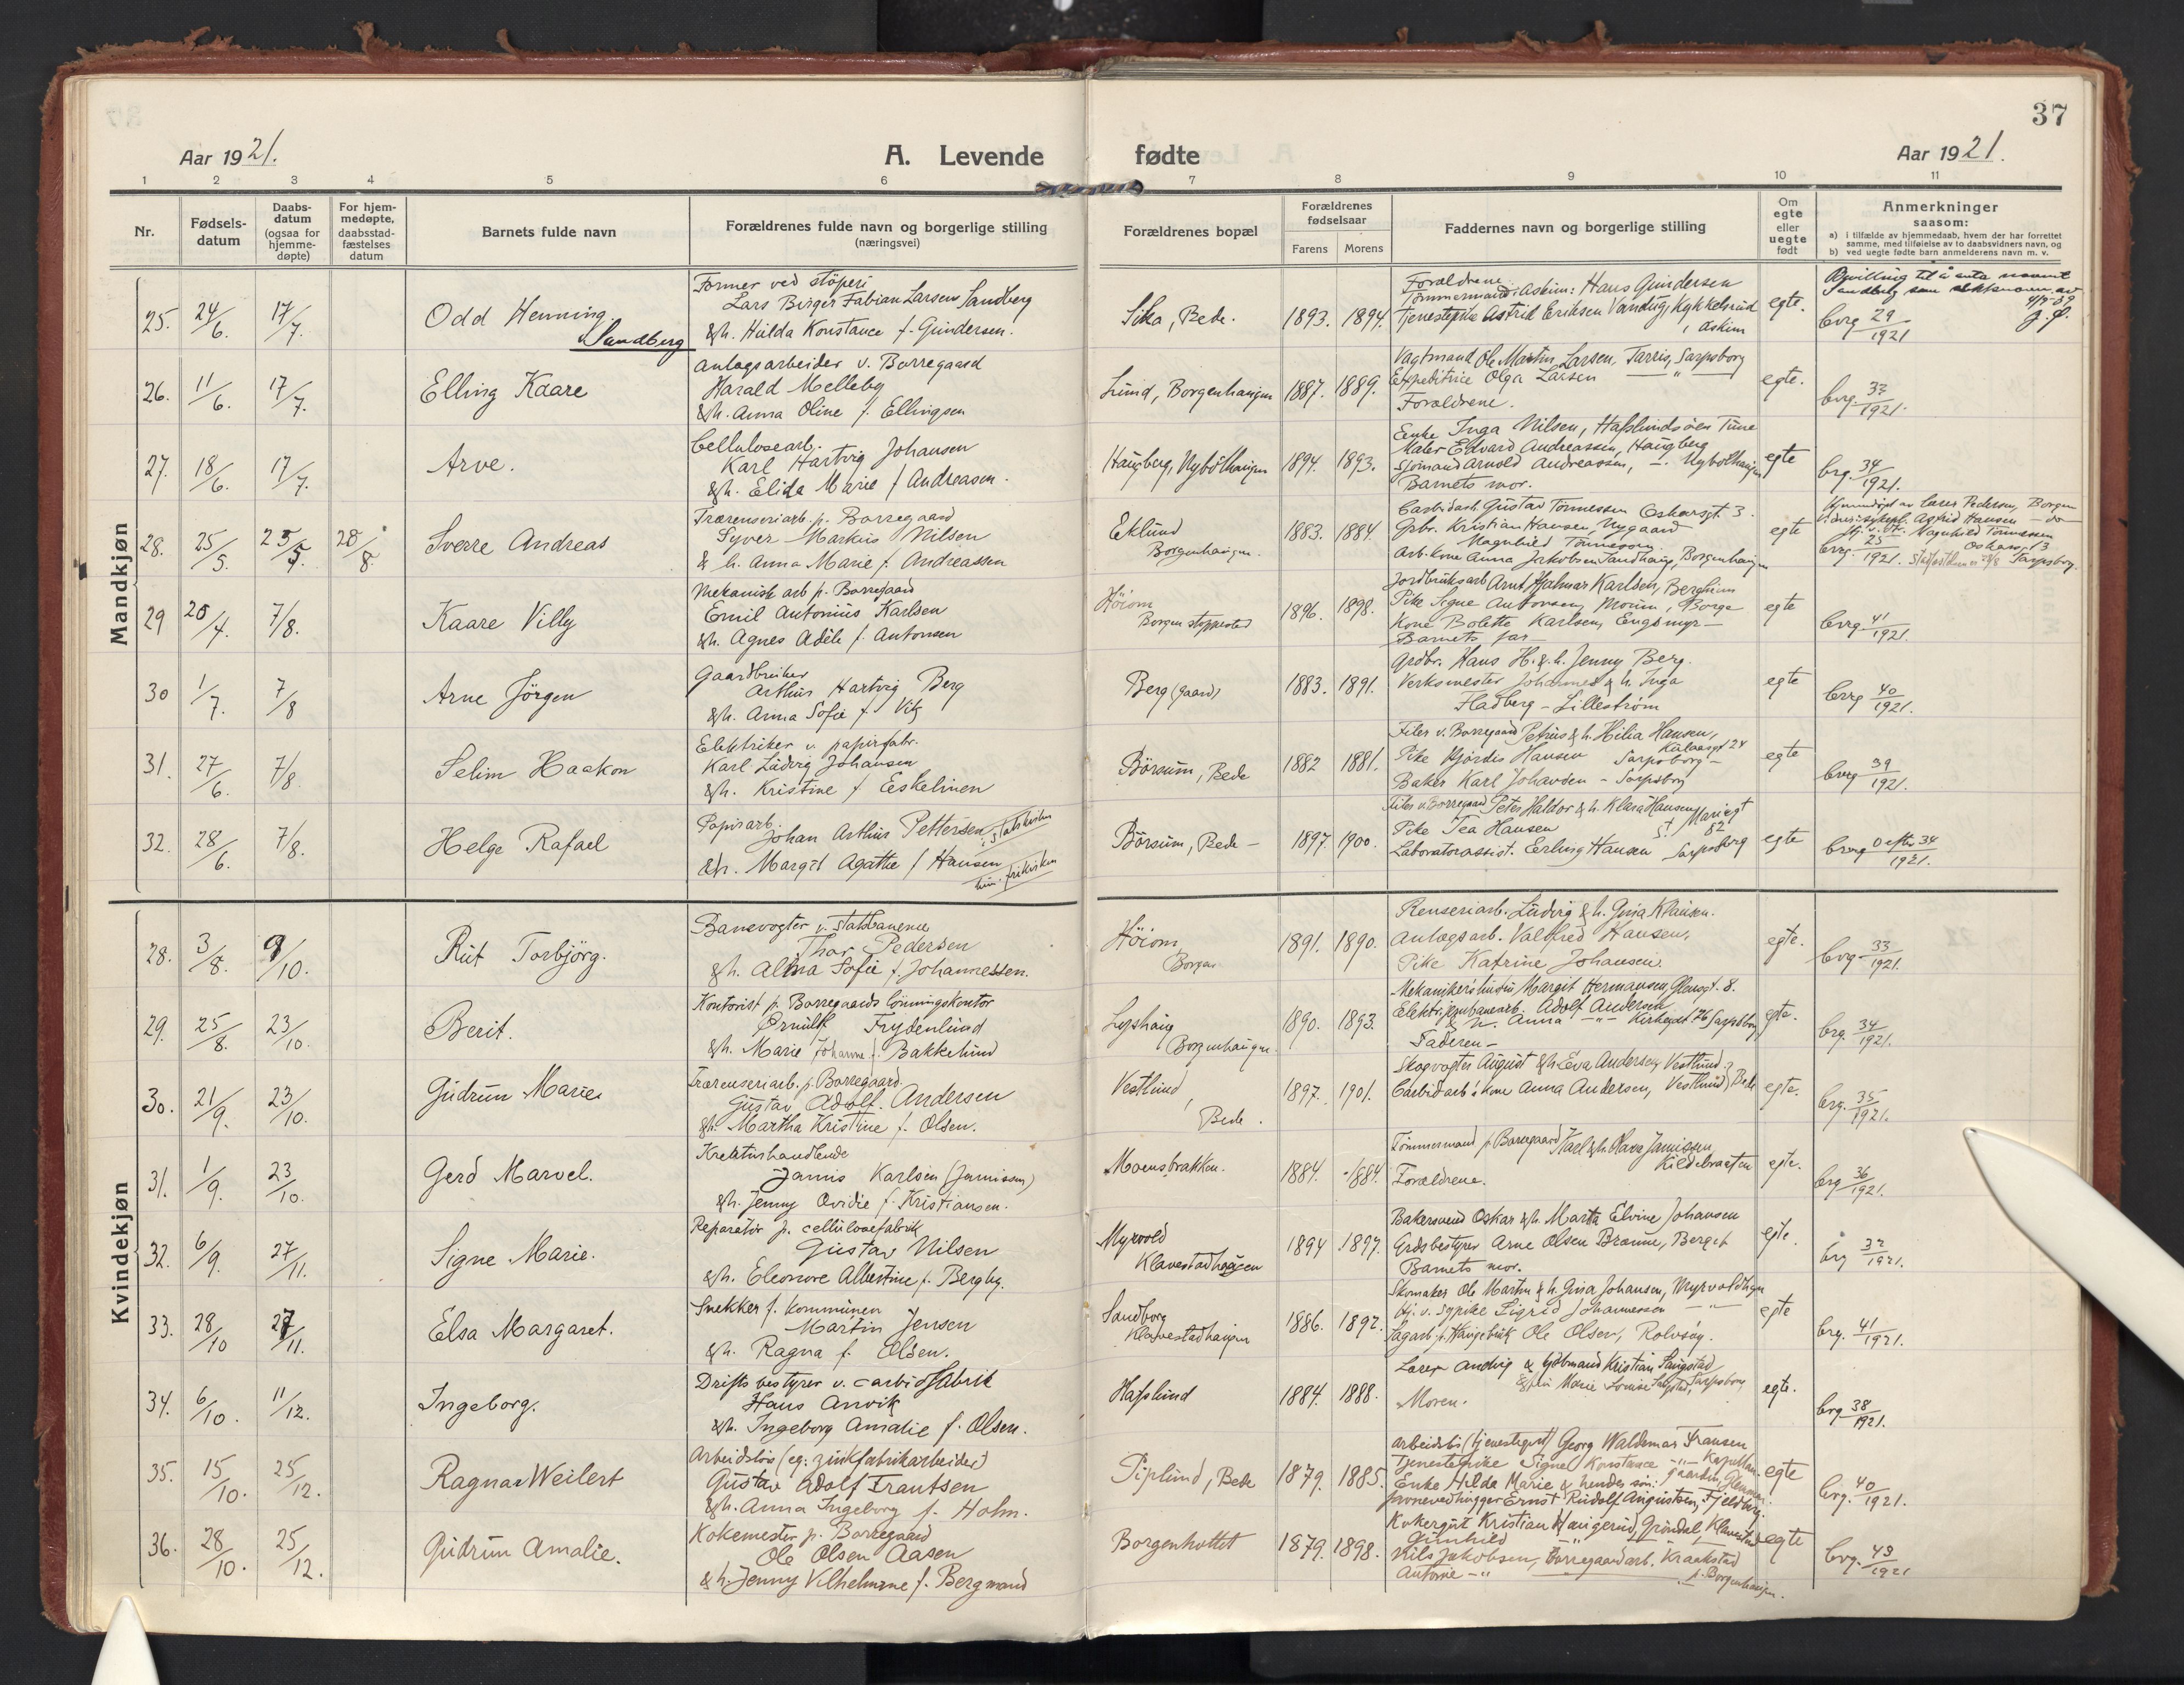 37
Aar 1921.
A. Levende
fødte
Aar 1921.
1 2 3 4 5 6 7 8 9 10 11
Nr.
Fødsels-
datum
Daabs-
datum
(ogsaa for
hjemme-
døpte)
For hjem-
medøpte,
daabsstad-
fæstelses
datum
Barnets fulde navn
Forældrenes fulde navn og borgerlige stilling
(næringsvei)
Forældrenes bopæl
Forældrenes
fødselsaar
Farens Morens
Faddernes navn og borgerlige stilling
Om
egte
eller
uegte
født
Anmerkninger
saasom:
a) i tilfælde av hjemmedaab, hvem der har forrettet
samme, med tilføielse av to daabsvidners navn, og
b) ved uegte fødte barn anmelderens navn m. v.
Mandkjøn
25. 24/6. 17/7.
Odd Henning.
Sandberg
Former ved støperi
Lars Birger Fabian Larsen Sandberg
& h. Hulda Konstance f. Gundersen.
Sika, Bede.
1893. 1894.
Forældrene
Tømmermand, Askim: Hans Gundersen
Tjenestepike Astrid Eriksen Vandug, Kykkelsrud
, Askim
egte.
Bevilling til å anta navnet
Sandberg som slektsnavn av
brg 29/1921
26. 11/6. 17/7.
Elling Kaare
Anlagsarbeider v. Borregaard
Harald Melleby
& h. Anna Oline f. Ellingsen
Lund, Borgenhaugen
1887. 1889.
Vagtmand Ole Martin Larsen, Tarris, Sarpsborg
Expeditrice Olga Larsen — " —
Forældrene.
egte.
brg. 33/1921.
27. 18/6. 17/7.
Arve.
Cellulosearb.
Karl Hartvig Johansen
& h. Elida Marie f Andreasen.
Haugberg, Nybølhaugen
1894. 1893.
Enke Inga Nilsen, Hafslundsøen Tune
Maler Edvard Andreassen, Haugberg
Sjømand Arnold Andreassen, —. Nybølhaugen
Barnets mor.
egte
brg. 34/1921.
28. 25/5. 25/5. 28/8.
Sverre Andreas
Trærenseriarb. p. Borregaard
Syver Markus Nilsen
& h. Anna Marie f. Andreassen
Eklund
Borgenhaugen.
1883. 1884.
Carbidarb. Gustav Tønnessen Oskarsgt 3.
Grbr. Kristian Hansen, Nygaard
Magnhild Tønnessen
Arb. kone Anna Jakobsen Sandhaug, Borgenhaugen
egte
Hjemmedøpt av Lars Pedersen, Borgen
Astrid Hansen — do —
Magnhild Tønnessen
Oskarsgt 3
Sarpsborg.
brg. 25/1921.
29 20/4. 7/8.
Kaare Villy
Mekanisk arb p. Borregaard
Emil Antonius Karlsen
& h. Agnes Adèle f. Antonsen
Høiom
Borgen stoppested
1896. 1898.
Jordbruksarb Arnt Hjalmar Karlsen, Bergheim
Pike Signe Antonsen, Moum, Borge
Kone Bolette Karlsen, Engsmyr —
Barnets far —
egte
brg. 41/1921.
30 1/7. 7/8
Arne Jørgen
Gaardbruker
Arthur Hartvig Berg
& h. Anna Sofie f. Vik
Berg (gaard)
1883. 1891.
Grdbr. Hans H. & h. Jenny Berg.
Verksmester Johannes & h. Inga
Fladberg — Lillestrøm
egte
brg 40/1921.
31. 27/6. 7/8.
Selim Haakon
Elektriker v. papirfabr.
Karl Ludvig Johansen
& h. Kristine f Eskelinen
Børsum, Bede
1882 1881.
Filer v. Borregaard Petrus & h. Hilia Hansen,
Pike Hjørdis Hansen Sarpsborg —
Baker Karl Johansen — Sarpsborg
egte
brg 39/1921.
32. 28/6. 7/8.
Helge Rafael
Papirarb.
Johan Arthur Pettersen, statskirken
& h. Margit Agathe f Hansen
hun. frikirken
Børsum, Bede —
1897. 1900.
Filer v. Borregaard Peter Haldor & h. Klara Hansen, Mariegt
Pike Tea Hansen 82
Laboratorassist. Erling Hansen Sarpsborg
egte
brg 0 efter 34/1921.
Kvindekjøn
28. 3/8. 9/10.
Rut Torbjørg.
Banevogter v. Statsbanerne
Thor Pedersen
& h. Alma Sofie f. Johannessen.
Høiom,
Borgen
1891. 1890.
Renseriarb. Ludvig & h. Gina Klausen.
Anlagsarb. Valfred Hansen,
Pike Katrine Johansen.
egte.
brg 33/1921.
29. 25/8. 23/10.
Berit.
Kontorist p. Borregaards lønningskontor
Ørnulf Frydenlund
& h. Marie Johanne f. Bakkelund
Lyshaug
Borgenhaugen.
1890. 1893.
Mekanikers hustru Margit Hermansen, Glengt. 8.
Elektr. jernbanearb. Adolf Andersen
& h. Anna — " — Kirkegt. 26 Sarpsborg
Faderen —
egte.
brg. 34/1921.
30. 21/9. 23/10.
Gudrun Marie
Trærenseriarb. p. Borregaard.
Gustav Adolf Andersen
& h. Martha Kristine f. Olsen.
Vestlund,
Bede.
1897. 1901.
Skogvogter August & h. Eva Andersen, Vestlund
Carbidarb.s kone Anna Andersen, Vestlund, Bede
egte.
brg. 35/1921.
31. 1/9. 23/10.
Gerd Marvel.
Kreaturhandlende
Jamis Karlsen (Jamissen)
& h. Jenny Ovidie f. Kristiansen.
Moensbakken.
1884. 1884.
Tømmermand p. Borregaard Karl & h. Hava Jamissen
Kildebraaten
Forældrene.
egte.
brg 36/1921.
32. 6/9. 27/11.
Signe Marie.
Reparatør p. cellulosefabrik
Gustav Nilsen
& h. Eleonore Albertine f. Bergby.
Myrvold
Klavestadhaugen
1894 1897.
Bakersvend Oskar & h. Marta Elvine Johansen
Grdsbestyrer Arne Olsen Braune, Berget
Barnets mor.
egte.
brg 37/1921.
33. 28/10 27/11.
Elsa Margaret.
Snekker f. kommunen
Martin Jensen
& h. Ragna f. Olsen.
Sandborg
Klavestadhaugen
1886. 1892.
Skomaker Ole Martin & h. Gina Johansen, Myrvoldhgn
Hj. v. sypike Sigrid Johannesson — " —
Sagarb. p. Haugebruk Ole Olsen, Rolvsøy.
egte
brg. 41/1921.
34. 6/10. 11/12.
Ingeborg.
Driftsbestyrer v. carbidfabrik
Hans Anvik
& h. Ingeborg Amalie f. Olsen.
Hafslund
1884. 1888.
Lærer Andvig & Kristian Saugstad
Marie Louise Saugstad, Sarpsborg
Moren.
egte.
brg 38/1921.
35. 15/10. 25/12.
Ragnar Weilert
Arbeidsløs (eg: zinkfabrikarbeider)
Gustav Adolf Frantsen
& h. Anna Ingeborg f. Holm.
Piplund, Bede
1879. 1885.
Arbeidsløs (tjenestegut) Georg Waldemar Fransen
Tjenestepike Signe Konstance — " — Kapellangaarden, Glemmen.
Enke Hilda Marie & hendes søn:
Ernst Rudolf Augustsen, Fjeldberg.
egte
brg. 40/1921.
36. 28/10. 25/12.
Gudrun Amalie.
Kokemester p. Borregaard
Ole Olsen Aasen
& h. Jenny Vilhelmine f. Bergmand
Borgenhottet
1879. 1898.
Kokergut Kristian Haugerud, Grøndal, Klavestad
Gunhild — " —
Nils Jakobsen, Borregaardarb. Kraakstad
Antonie — " — p. Borgenhaugen.
egte
brg. 43/1921